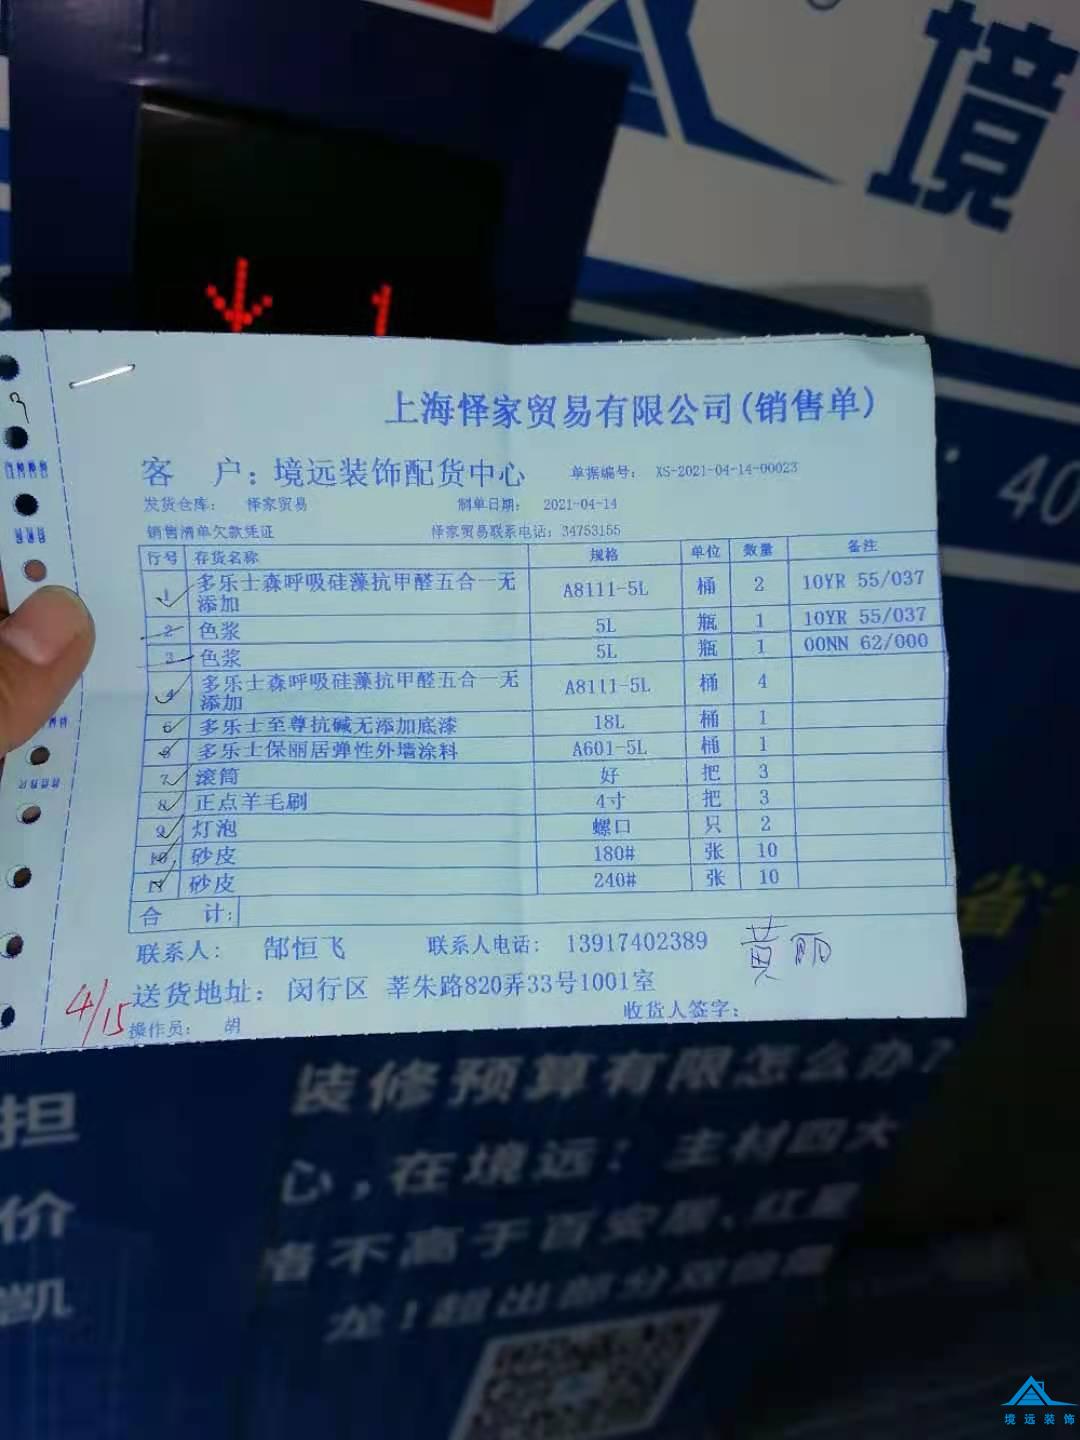 境
40
上海怿家贸易有限公司(销售单)
客 户: 境远装饰配货中心 单据编号: XS-2021-04-14-00023
发货仓库: 怿家贸易 制单日期: 2021-04-14
销售清单欠款凭证 怿家贸易联系电话: 34753155
行号 存货名称 规格 单位 数量 备注
1 多乐士森呼吸硅藻抗甲醛五合一无添加 A8111-5L 桶 2 10YR 55/037
2 色浆 5L 瓶 1 10YR 55/037
3 色浆 5L 瓶 1 00NN 62/000
4 多乐士森呼吸硅藻抗甲醛五合一无添加 A8111-5L 桶 4
多乐士至尊抗碱无添加底漆 18L 桶 1
多乐士保丽居弹性外墙涂料 A601-5L 桶 1
7 滚筒 好 把 3
8 正点羊毛刷 4寸 把 3
9 灯泡 螺口 只 2
10 砂皮 180# 张 10
11 砂皮 240# 张 10
合 计:
联系人: 郜恒飞 联系人电话: 13917402389 黄丽
4/15 送货地址: 闵行区 莘朱路820弄33号1001室
操作员: 胡 收货人签字:
省
担
价
凯
装修预算有限怎么办?
心,在境远! 主材四大
者不高于百安居、红星
龙!超出部分双倍
境远装饰